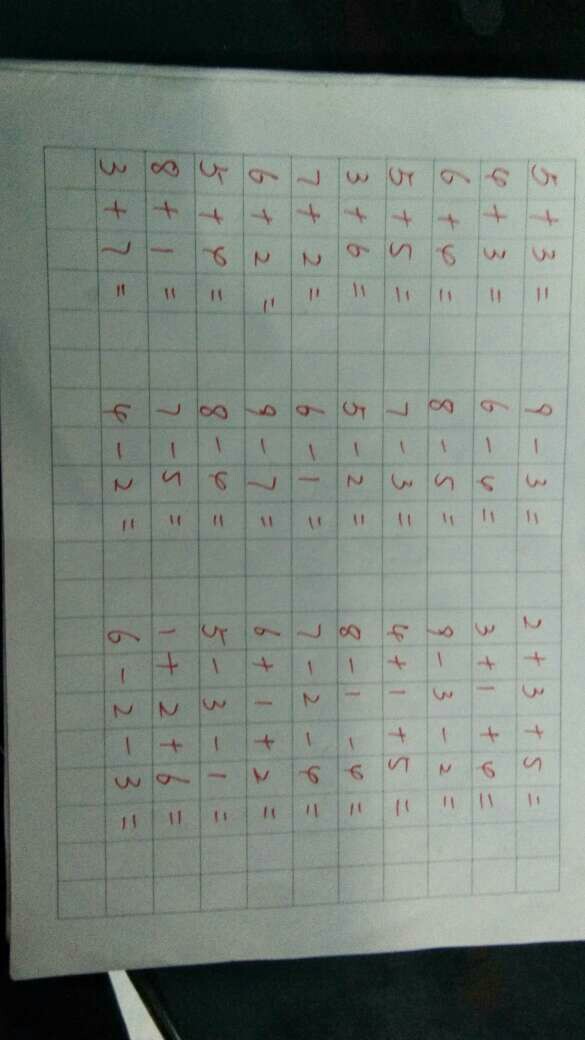 5+3= 9-3= 2+3+5=
4+3= 6-4= 3+1+4=
6+4= 8-5= 9-3-2=
5+5= 7-3= 4+1+5=
3+6= 5-2= 8-1-4=
7+2= 6-1= 7-2-4=
6+2= 9-7= 6+1+2=
5+4= 8-4= 5-3-1=
8+1= 7-5= 1+2+6=
3+7= 4-2= 6-2-3=